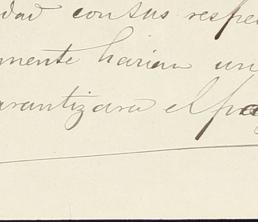 dad con sus respe
mente harian un
arantizara el pa